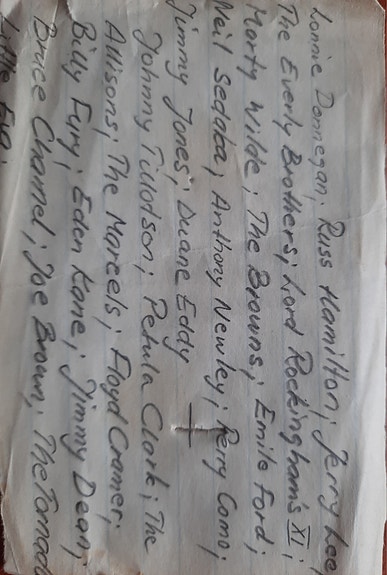 Lonnie Donnegan; Russ Hamilton; Jerry Lee,
The Everly Brothers; Lord Rockingham's XI;
Marty Wilde; The Browns; Emile Ford;
Neil Sedaka, Anthony Newley; Perry Como;
Jimmy Jones; Duane Eddy
Johnny Tillotson; Petula Clark; The
Allisons; The Marcels; Floyd Cramer;
Billy Fury; Eden Kane; Jimmy Dean;
Bruce Channel; Joe Brown; The Tornad
Little Eva;